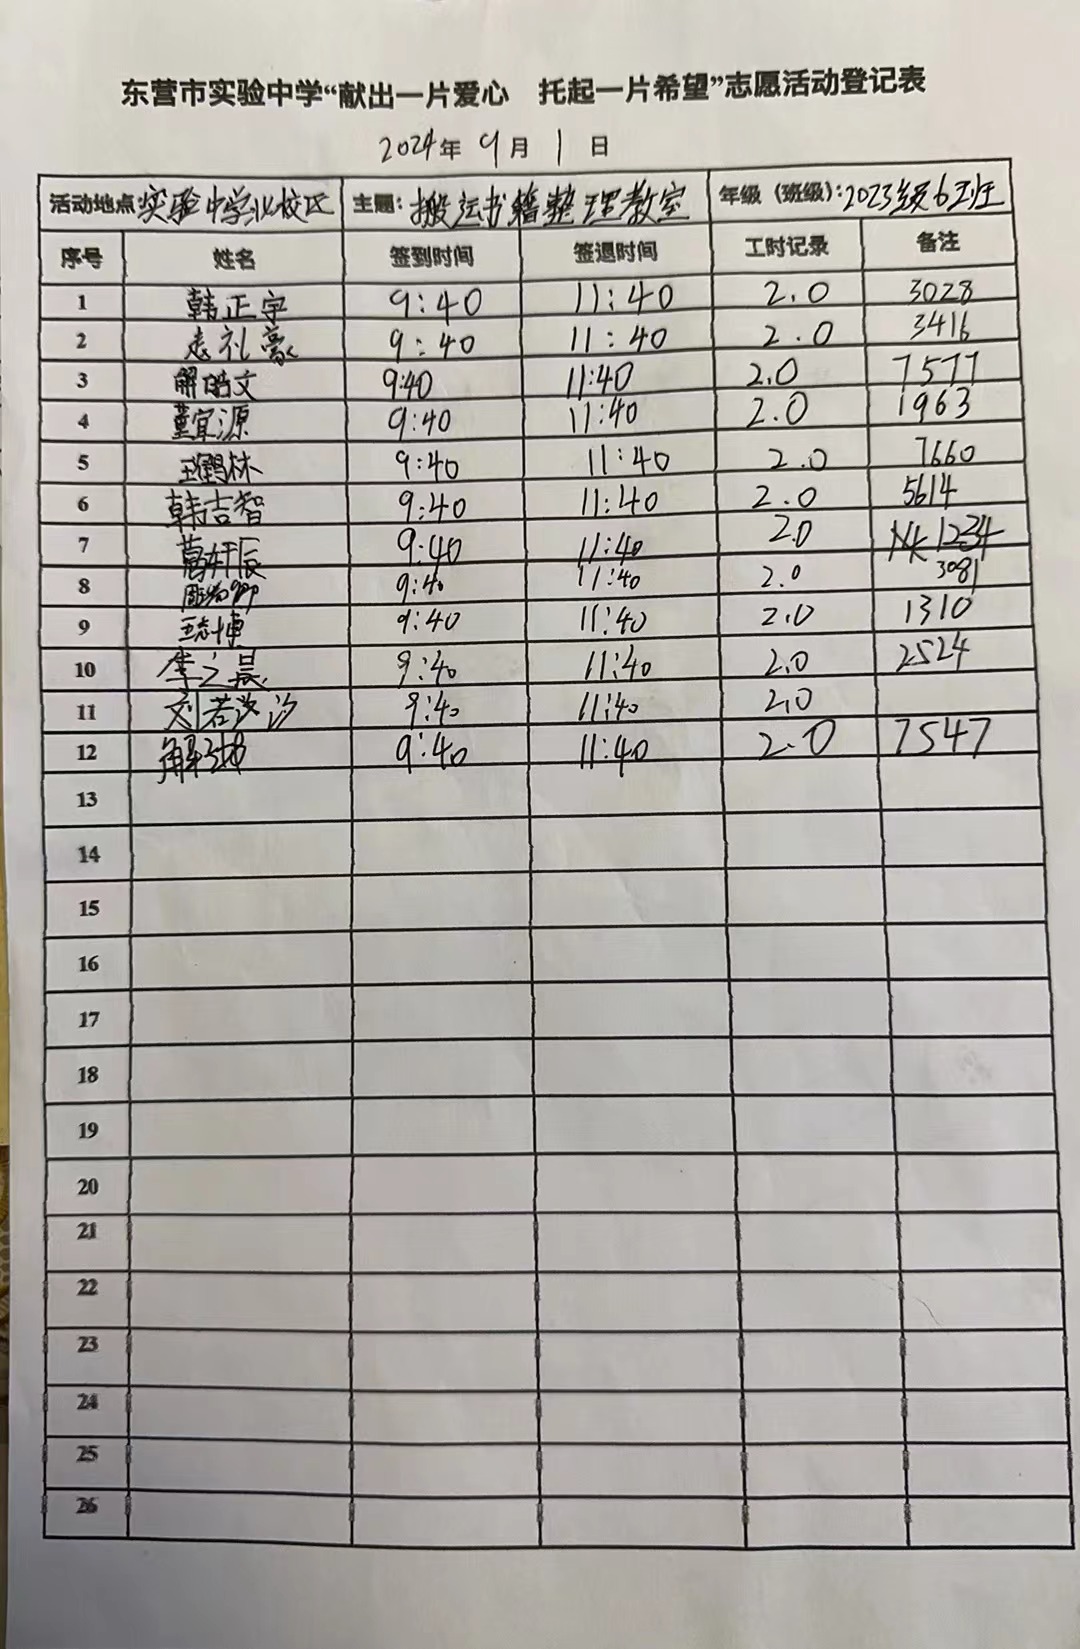 东营市实验中学“献出一片爱心 托起一片希望”志愿活动登记表
2024年 9月 1日
活动地点:实验中学北校区 主题:搬运书籍整理教室 年级（班级）:2023级6班
序号 姓名 签到时间 签退时间 工时记录 备注
1 韩正宇 9:40 11:40 2.0 3028
2 礼豪 9:40 11:40 2.0 3416
3 解皓文 9:40 11:40 2.0 7577
4 董宜源 9:40 11:40 2.0 1963
5 王鹤林 9:40 11:40 2.0 7660
6 韩吉智 9:40 11:40 2.0 5614
7 葛轩辰 9:40 11:40 2.0 1234
8 9:40 11:40 2.0 3081
9 王志博 9:40 11:40 2.0 1310
10 李之晨 9:40 11:40 2.0 2524
11 刘若汐 9:40 11:40 2.0
12 解 9:40 11:40 2.0 7547
13
14
15
16
17
18
19
20
21
22
23
24
25
26